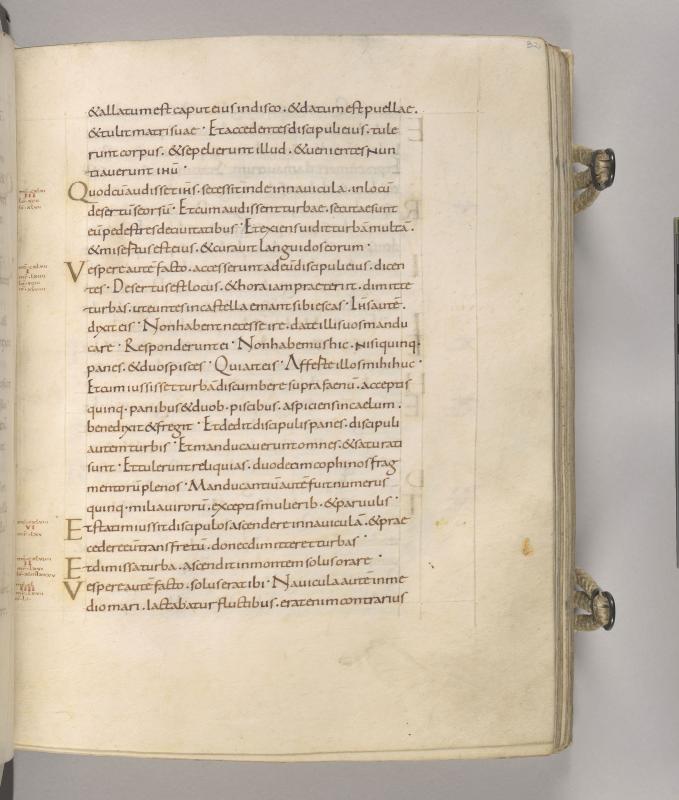 32
&allatum est caput eius in disco . & datum est puellae .
& tulit matri suae · Et accedentes discipuli eius . tule
runt corpus . & sepelierunt illud . & uenientes nun
tiauerunt ihū ·
Quod cū audisset ihs̄ . secessit inde in nauicula . in locū
desertū seorsū · Et cum audissent turbae . secutae sunt
eū pedestres de ciuitatibus · Et exiens uidit turbā multā .
& misertus est eius . & curauit languidos eorum ·
Vespere autē facto . accesserunt ad eūdiscipuli eius . dicen
tes · Desertus est locus . & hora iam praeteriit . dimitte
turbas . ut euntes in castella emant sibi escas · Ihs̄ autē .
dixit eis · Non habent necesse ire . date illis uos mandu
care · Responderunt ei · Non habemus hic . nisi quinq·
panes . & duos pisces · Qui ait eis · Afferte illos mihi huc ·
Et cum iussisset turbā discumbere supra faenū . acceptis
quinq· panibus & duob· piscibus . aspiciens in caelum .
benedixit & fregit · Et dedit discipulis panes . discipuli
autem turbis · Et manducauerunt omnes . & saturati
sunt · Et tulerunt reliquias . duodecim cophinos frag
mentorū plenos · Manducantiū autē fuit numerus
quinq· milia uirorū . exceptis mulierib· & paruulis ·
Et statim iussit discipulos ascendere in nauiculā . & prae
cedere eū trans fretū . donec dimitteret turbas ·
Et dimissa turba . ascendit in montem solus orare ·
Vespere autē facto . solus erat ibi · Nauicula autē in me
dio mari . iactabatur fluctibus . erat enim contrarius